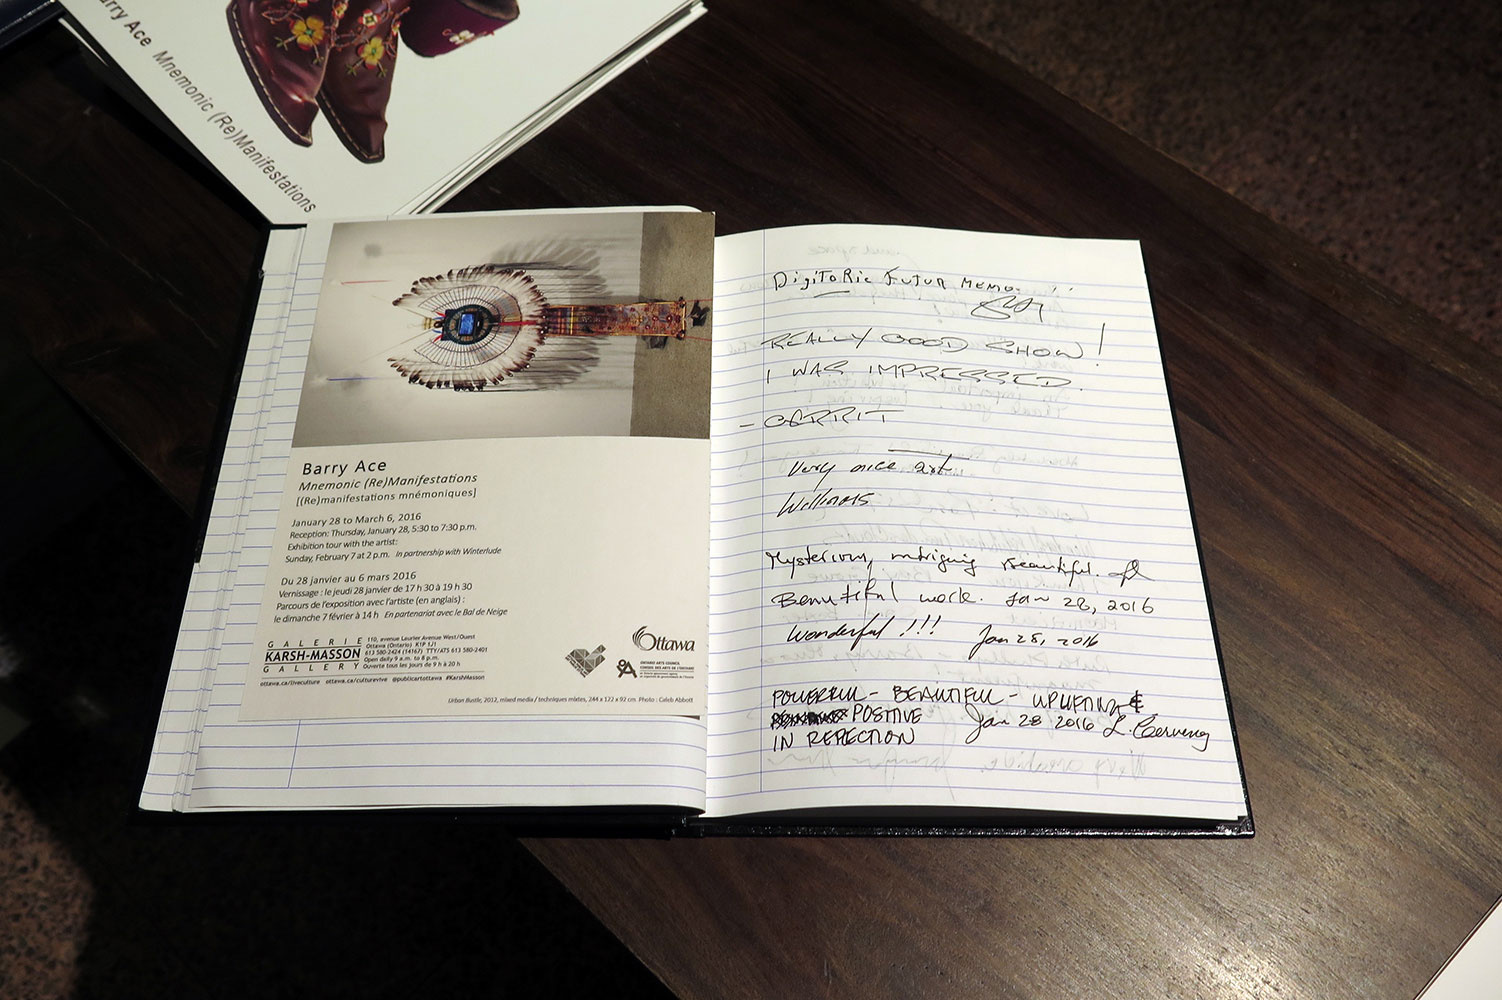 Barry Ace Mnemonic (Re)Manifestations
Barry Ace
Mnemonic (Re)Manifestations
[(Re)manifestations mnémoniques]
January 28 to March 6, 2016
Reception: Thursday, January 28, 5:30 to 7:30 p.m.
Exhibition tour with the artist:
Sunday, February 7 at 2 p.m. In partnership with Winterlude
Du 28 janvier au 6 mars 2016
Vernissage : le jeudi 28 janvier de 17 h 30 à 19 h 30
Parcours de l'exposition avec l'artiste (en anglais) :
le dimanche 7 février à 14 h En partenariat avec le Bal de Neige
GALERIE
KARSH-MASSON
GALLERY
110, avenue Laurier Avenue West/Ouest
Ottawa (Ontario) K1P 1J1
613 580-2424 (14167) TTY/ATS 613 580-2401
Open daily 9 a.m. to 8 p.m.
Ouverte tous les jours de 9 h à 20 h
ottawa.ca/liveculture ottawa.ca/culturevive @publicartottawa #KarshMasson
Ottawa
ONTARIO ARTS COUNCIL
CONSEIL DES ARTS DE L'ONTARIO
Urban Bustle, 2012, mixed media / techniques mixtes, 244 x 122 x 92 cm Photo : Caleb Abbott
DigiToRic FuTuR MEMO
REALLY GOOD SHOW!
I WAS IMPRESSED.
- GERRIT
Very nice art
Williams
Mysterious, intriguing beautiful.
Beautiful work. Jan 28, 2016
Wonderful !!! Jan 28, 2016
POWERFUL - BEAUTIFUL - UPLIFTING &
POSITIVE Jan 28 2016
IN REFLECTION